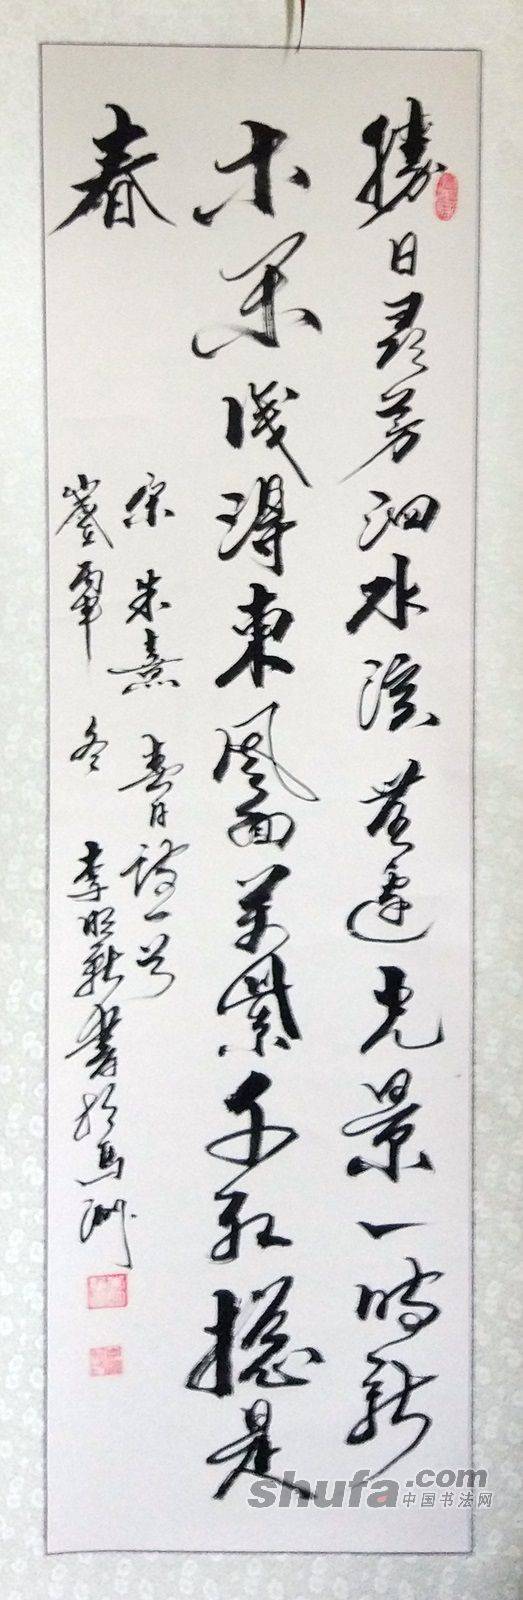 勝日尋芳泗水濱無邊光景一時新
等閑識得東風面萬紫千紅總是
春
宋 朱熹 春日詩一首
歲丙申 冬 李明新書於馬洲
shufa.com
中国书法网